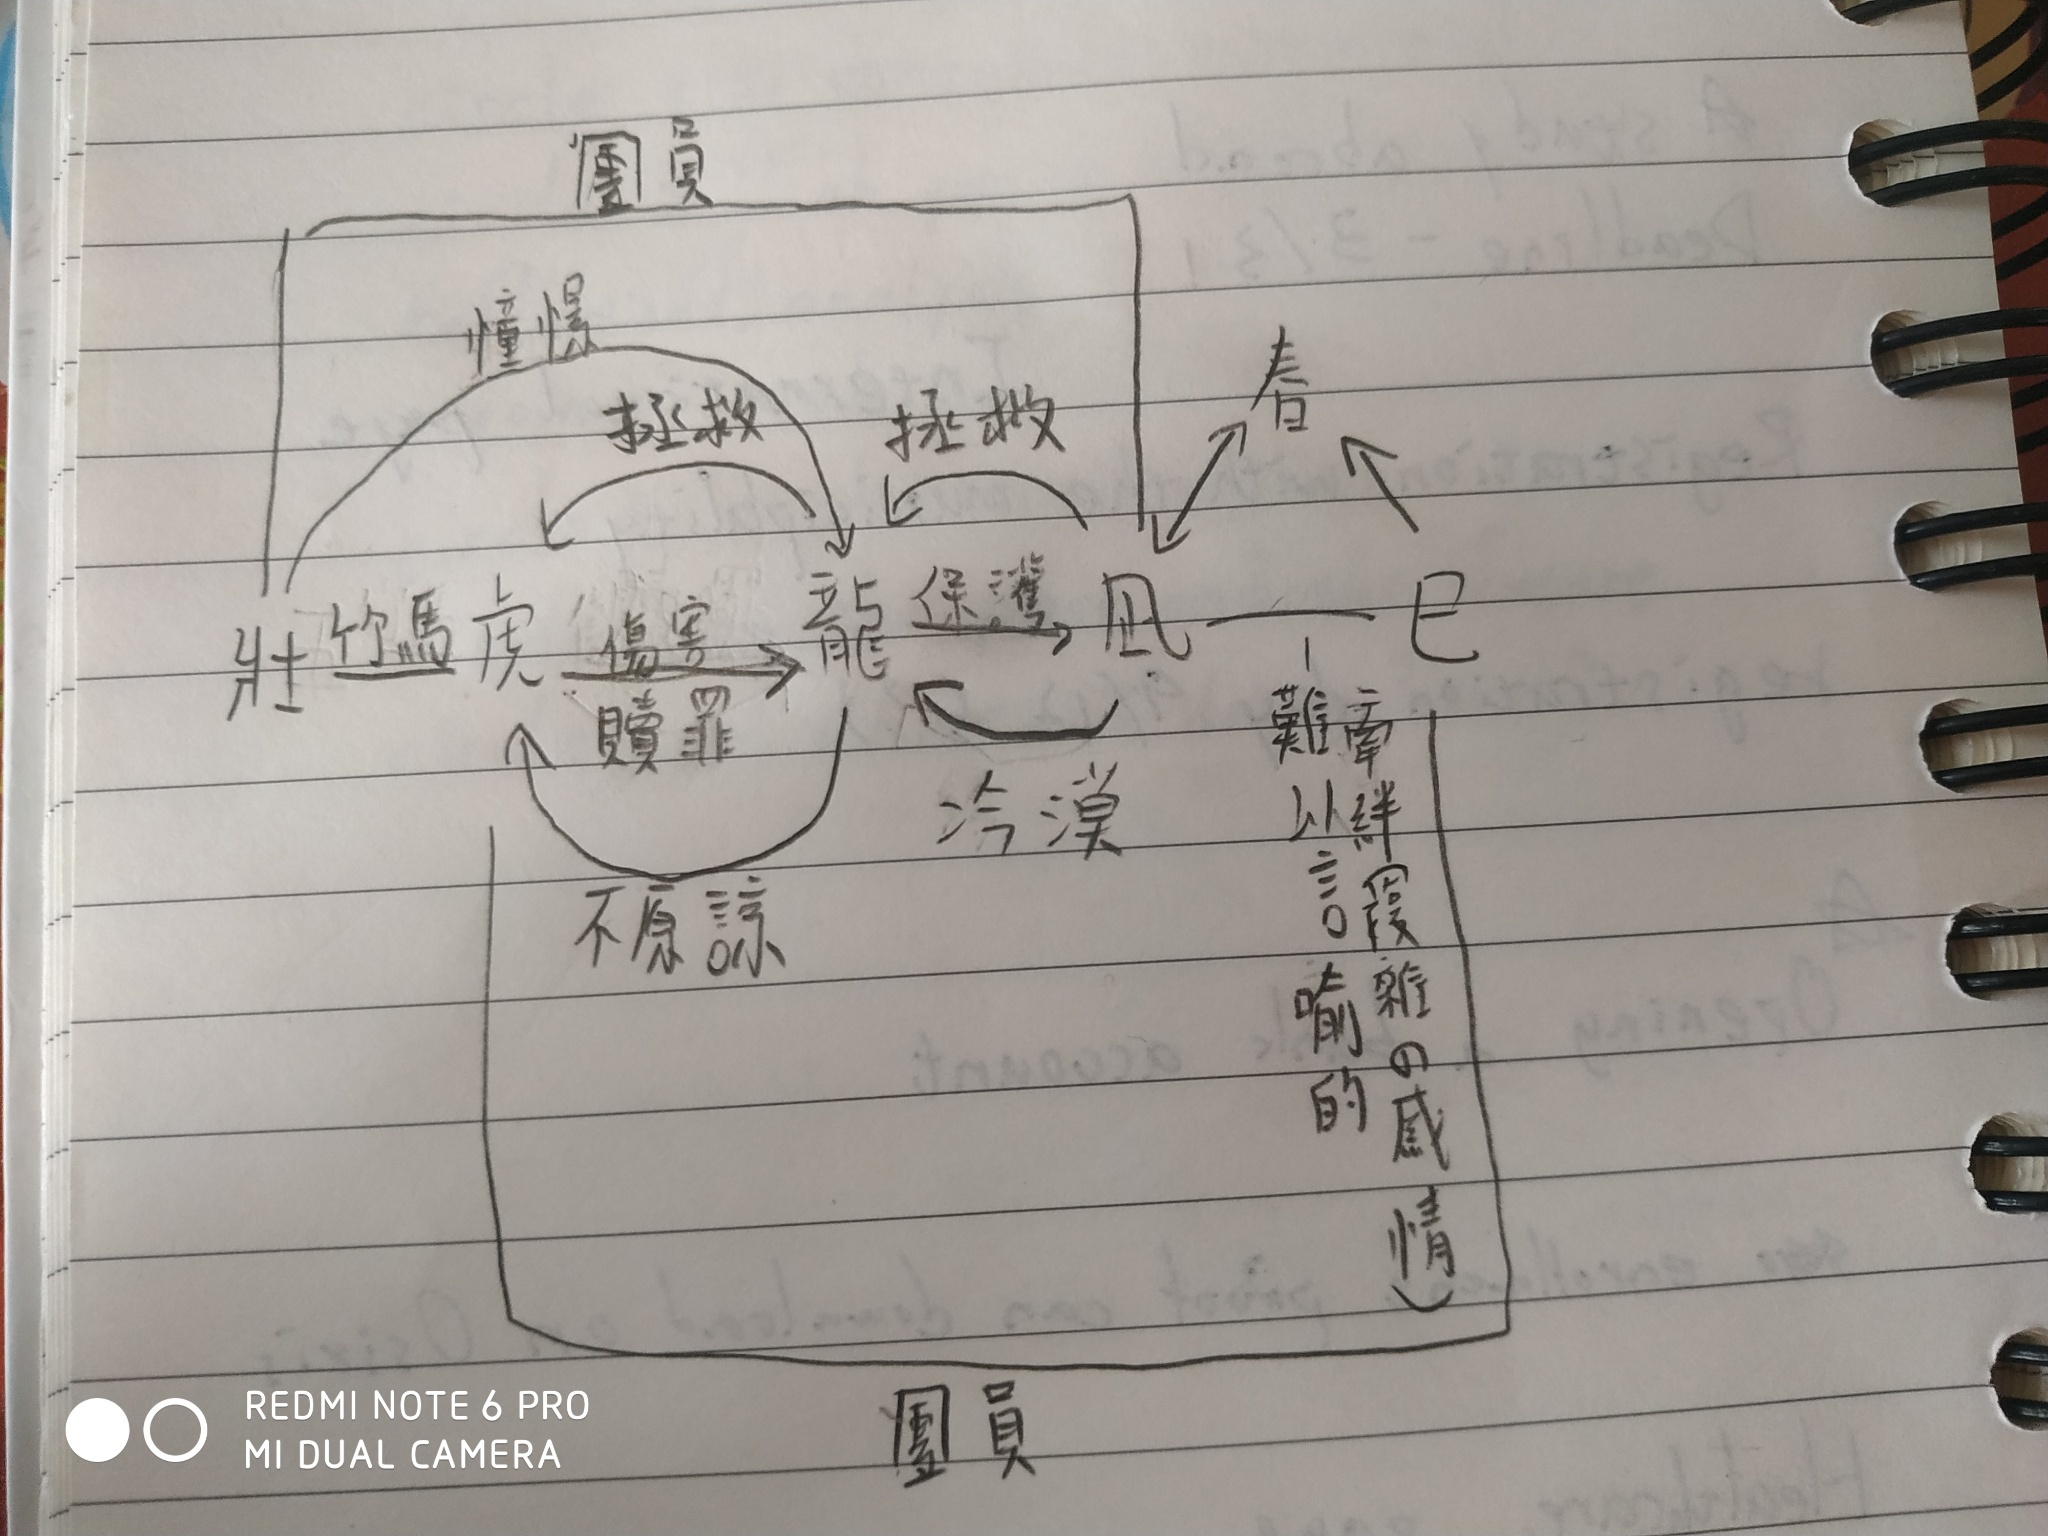 團員
憧憬
春
拯救 拯救
壯 竹馬 虎 傷害 龍 保護 凪 巳
贖罪
冷漠
不原諒
難以言喻的
牽絆複雜の感情
團員
A study abroad
Deadline - 3/31
Opening a account
REDMI NOTE 6 PRO
MI DUAL CAMERA